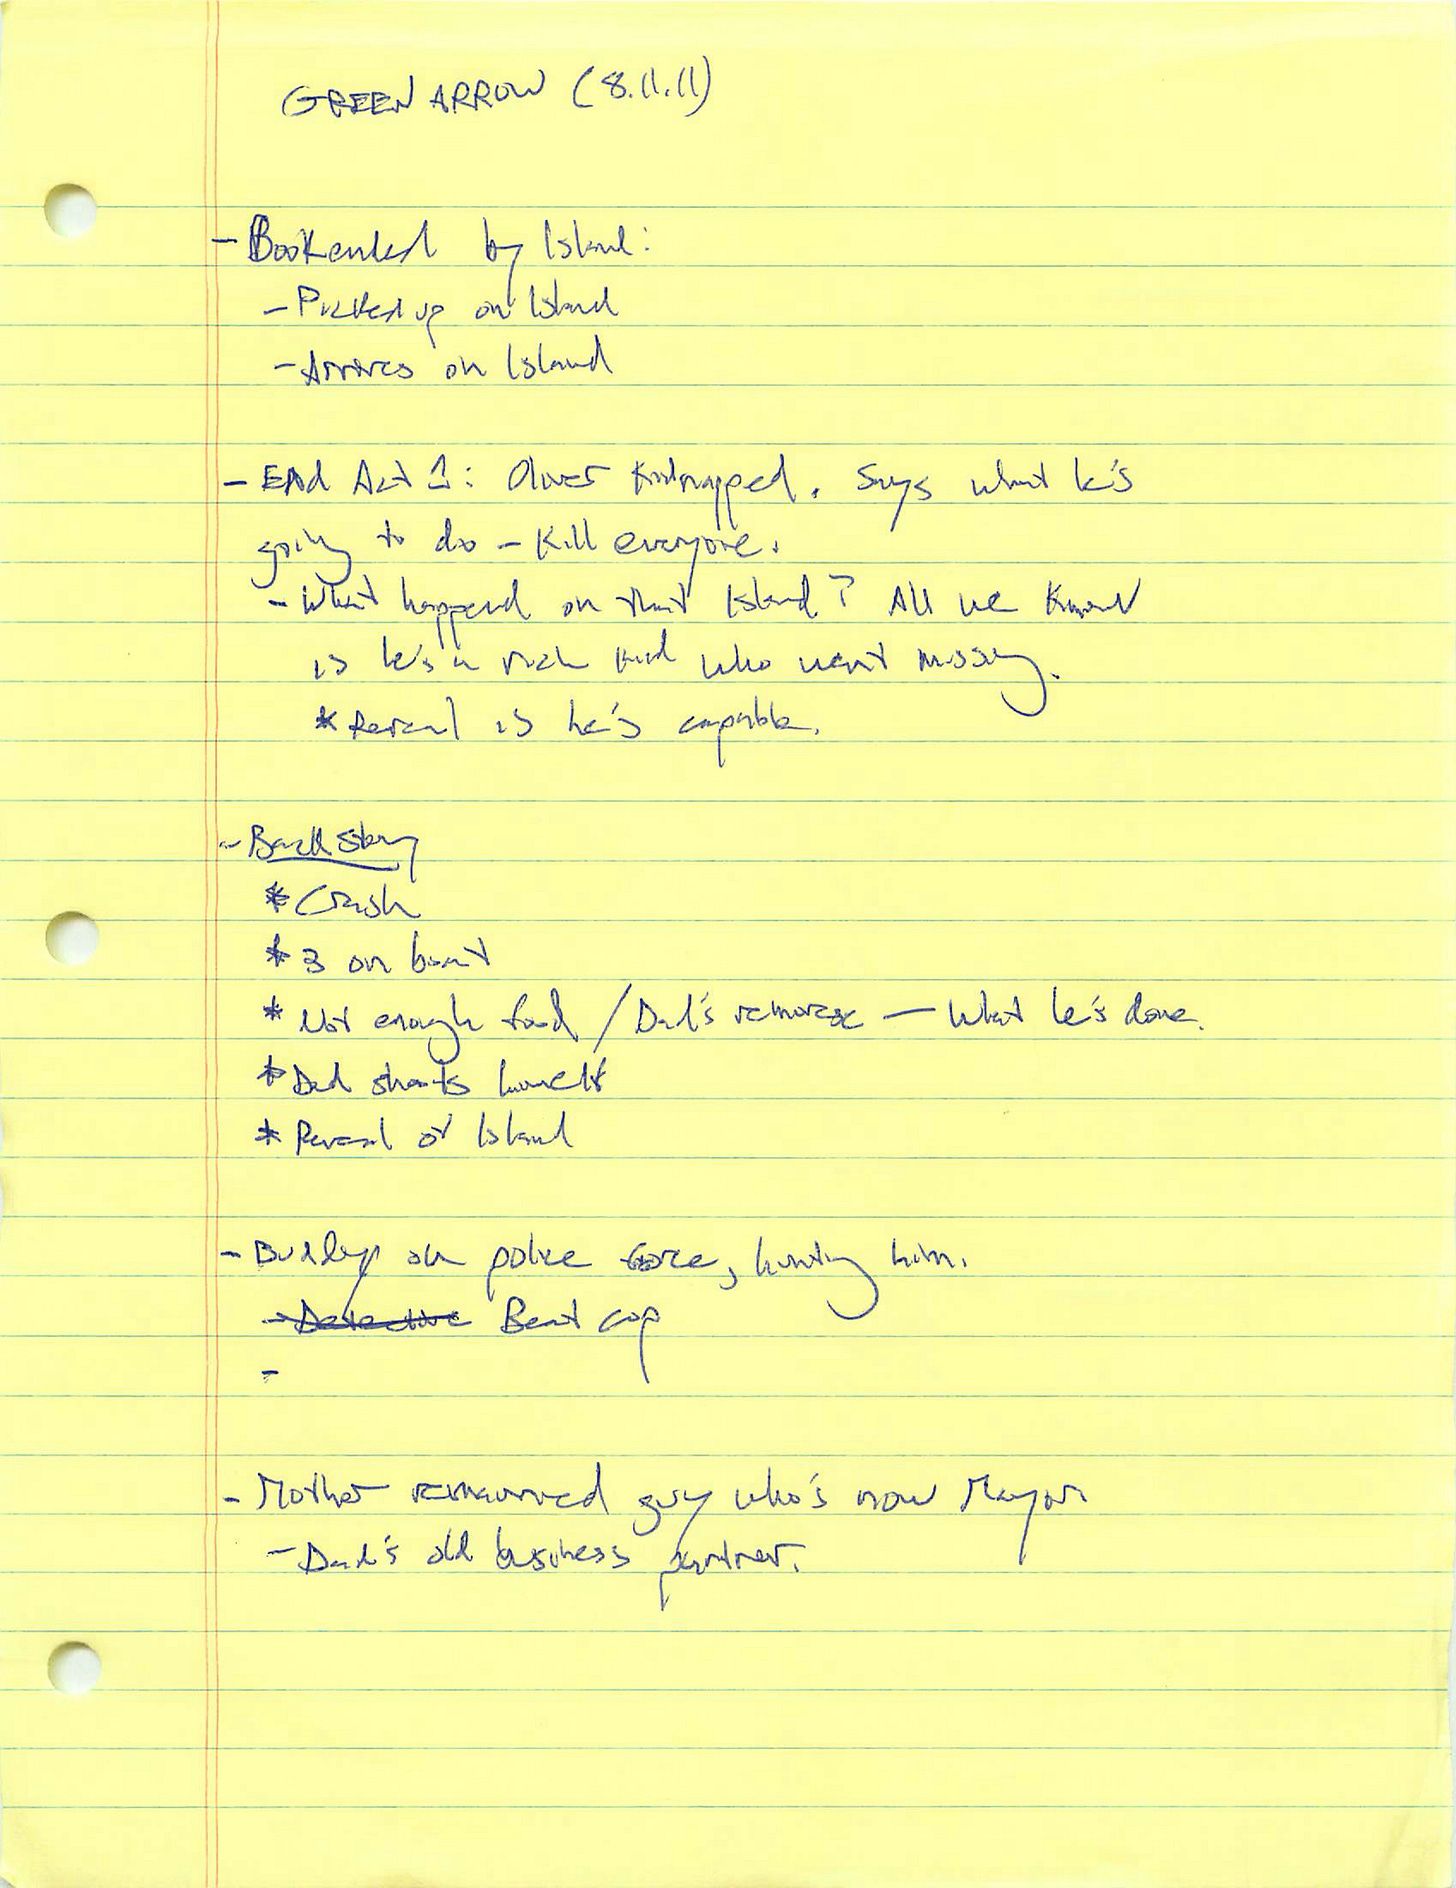 GREEN ARROW (8.11.11)
- Bookended by Island:
- Picked up on Island
- Arrives on Island
- End Act 1: Oliver kidnapped. Says what he's
going to do - Kill everyone.
- What happened on that Island? All we know
is he's a rich kid who went missing.
* Reveal is he's capable.
- Backstory
* Crash
* 3 on boat
* Not enough food / Dad's remorse — What he's done.
* Dad shoots himself
* Reveal of Island
- on police force, hunting him.
- Detective Beat cop
-
- Mother remarried guy who's now Mayor
- Dad's old business partner.